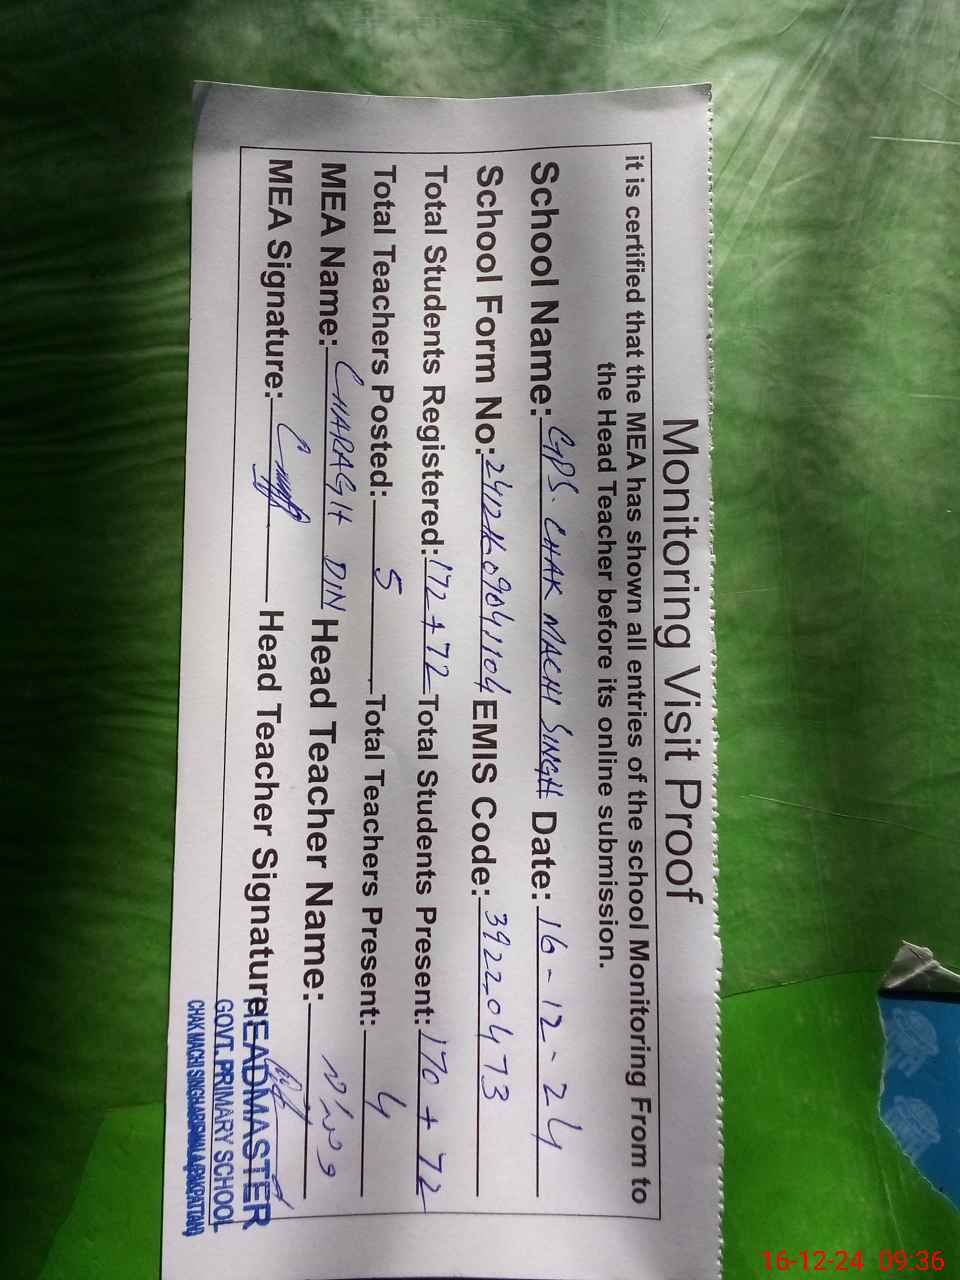 Monitoring Visit Proof
it is certified that the MEA has shown all entries of the school Monitoring From to
the Head Teacher before its online submission.
School Name: GPS. CHAK MACHI SINGH Date: 16-12-24
School Form No: EMIS Code: 39220473
Total Students Registered: 172+72 Total Students Present: 170+72
Total Teachers Posted: 5 Total Teachers Present: 4
MEA Name: CHARAGH DIN Head Teacher Name:
MEA Signature: Head Teacher Signature
HEADMASTER
GOVT. PRIMARY SCHOOL
CHAK MACHI SINGH
16-12-24 09:36